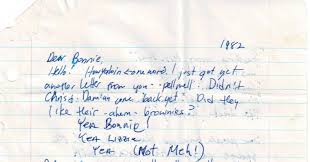 1982
Dear Bonnie,
Hello. I just got yet
another letter from you - pellmell. Didn't
Chris & Damian come back yet? Did they
like their - ahem - brownies?
YEA BONNIE!
YEA LIZZIE
YEA (Not Meh!)